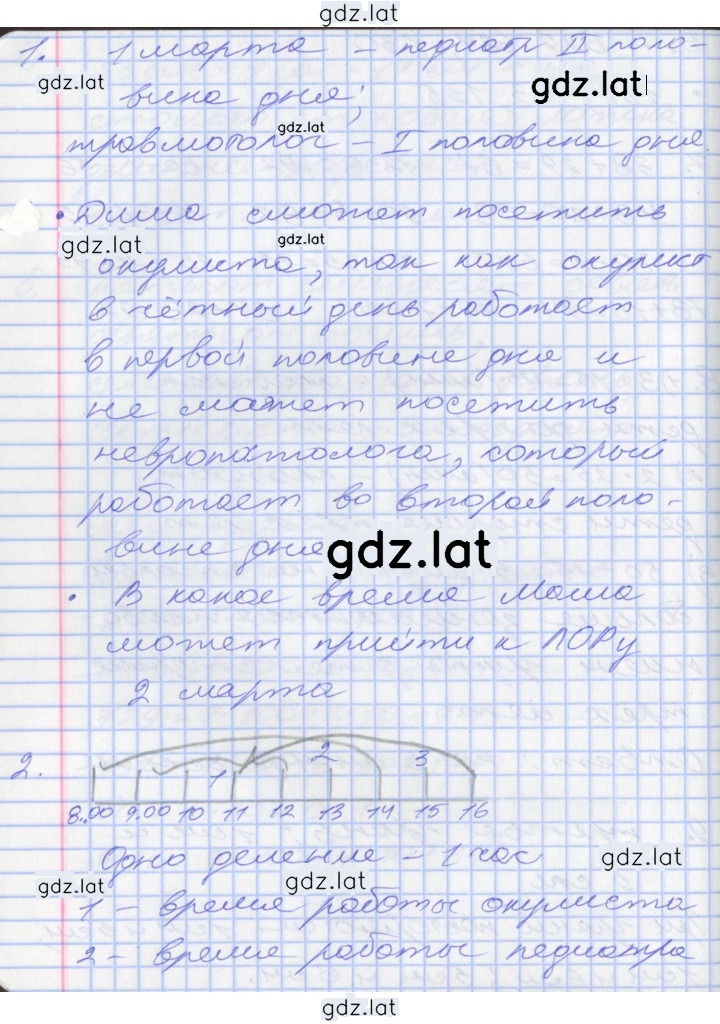 gdz.lat
1. 1 марта – педиатр II поло-
gdz.lat
gdz.lat
вина дня;
gdz.lat
травмотолог – I половина дня.
• Дима сможет посетить
gdz.lat
gdz.lat
окулиста, так как окулист
в чётный день работает
в первой половине дня и
не может посетить
невропатолога, который
работает во второй поло-
вине дня
gdz.lat
• В какое время Маша
может прийти к ЛОРу
2 марта
2.
1 2 3
8.00 9.00 10 11 12 13 14 15 16
Одно деление – 1 час
gdz.lat
gdz.lat
gdz.lat
1 – время работы окулиста
2 – время работы педиатра
gdz.lat